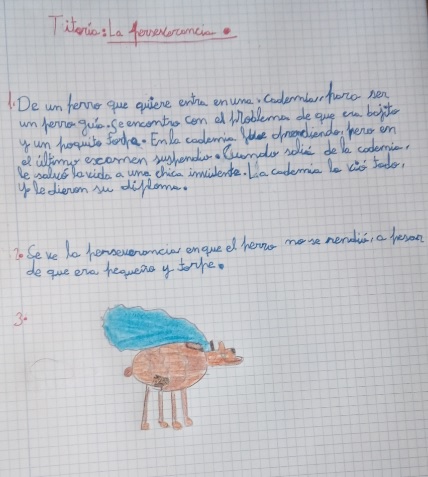 Titoría: La perseverancia.
1. De un perro que quiere entra en una cademia, para ser
un perro guía. Se encontra con el problema de que era bajito
y un poquito torpe. En la cademia fue aprendiendo, pero en
el último excamen suspendio. Cuando salió de la cademia,
le salvó la vida a una chica invidente. La cademia lo vió todo,
y le dieron su diploma.
2. Se ve la perseverancia en que el perro no se rendió, a pesar
de que era pequeño y torpe.
3.